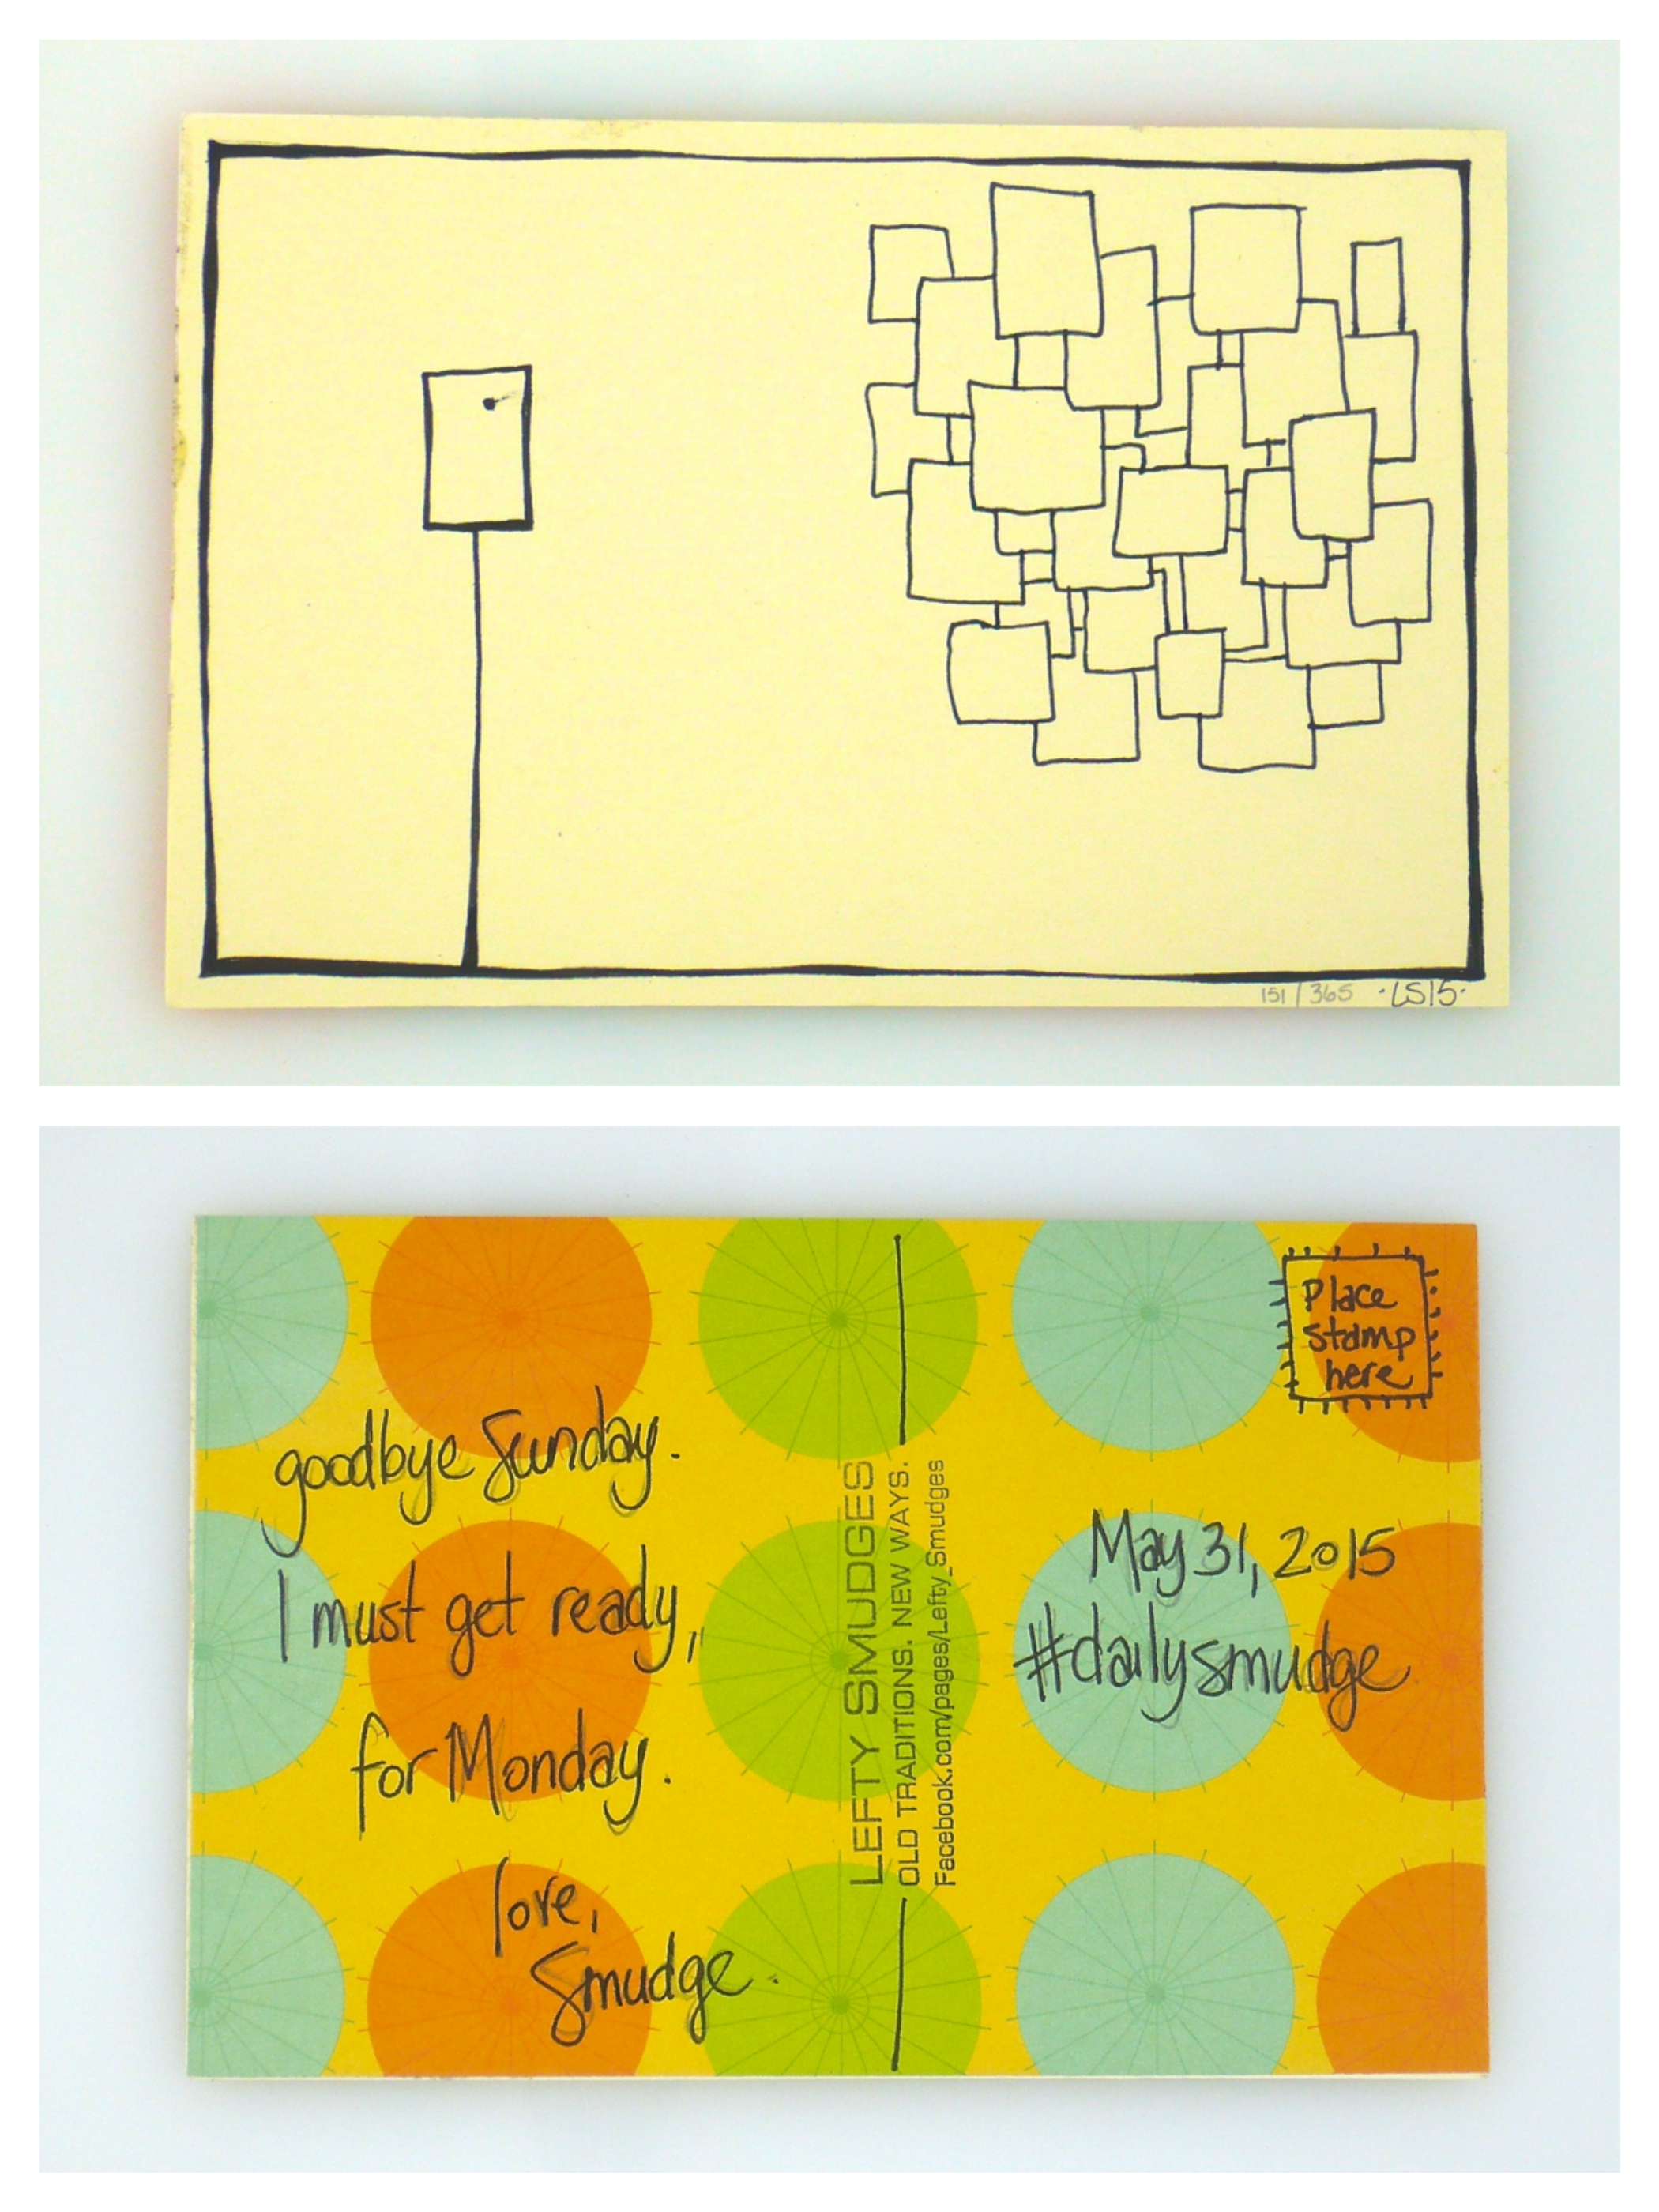 151/365 ·LS15·
goodbye Sunday.
I must get ready,
for Monday.
love,
Smudge.
LEFTY SMUDGES
OLD TRADITIONS. NEW WAYS.
Facebook.com/pages/Lefty_Smudges
Place
stamp
here
May 31, 2015
#dailysmudge